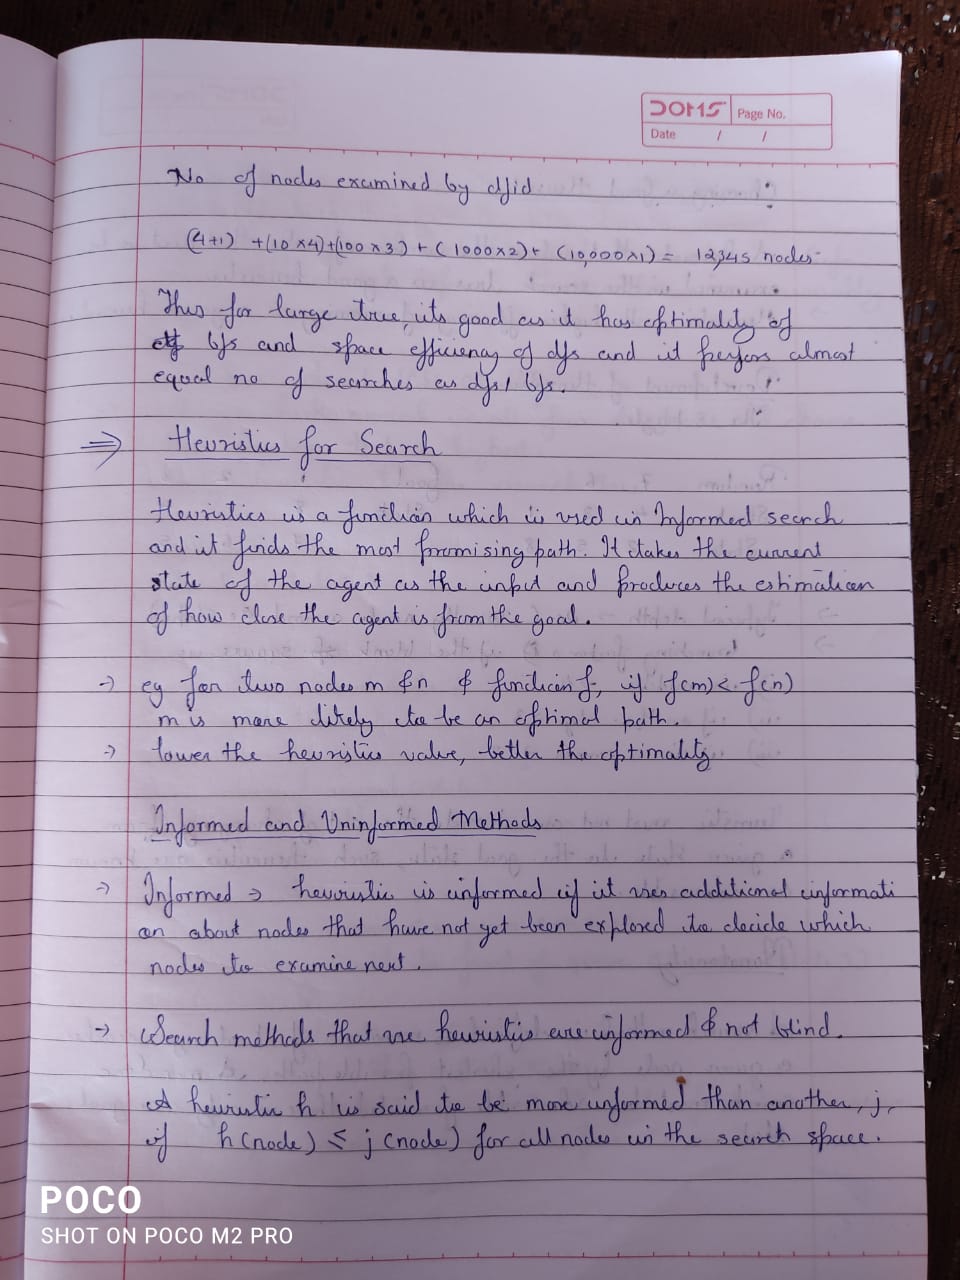 DOMS Page No.
Date / /
No of nodes examined by dfid
(4+1) +(10×4)+(100×3)+(1000×2)+(10,000×1)= 12345 nodes
Thus for large tree, its good as it has optimality of
bfs and space efficiency of dfs and it perfors almost
equal no of searches as dfs/bfs.
⇒ Heuristics for Search
Heuristics is a function which is used in Informed search
and it finds the most promising path. It takes the current
state of the agent as the input and produces the estimation
of how close the agent is from the goal.
→ eg for two nodes m & n & function f, if f(m) < f(n)
m is more likely to be an optimal path.
→ lower the heuristic value, better the optimality
Informed and Uninformed Methods
→ Informed → heuristic is informed if it uses additional informati
on about nodes that have not yet been explored to decide which
nodes to examine next.
→ Search methods that use heuristic are informed & not blind.
A heuristic h is said to be more informed than another, j,
if h(node) ≤ j(node) for all nodes in the search space.
POCO
SHOT ON POCO M2 PRO